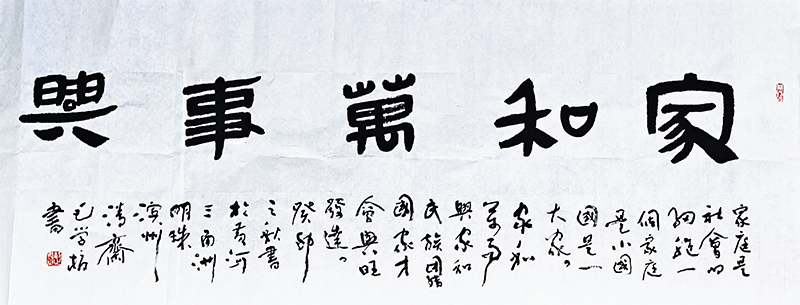 家和萬事興
家庭是
社會的
細胞一
個家庭
是小國
國是一
大家。
家和
萬事
興家和
民族團結
國家才
會興旺
發達。
癸卯
之秋書
於黄河
三角洲
明珠
濱州
齋
書